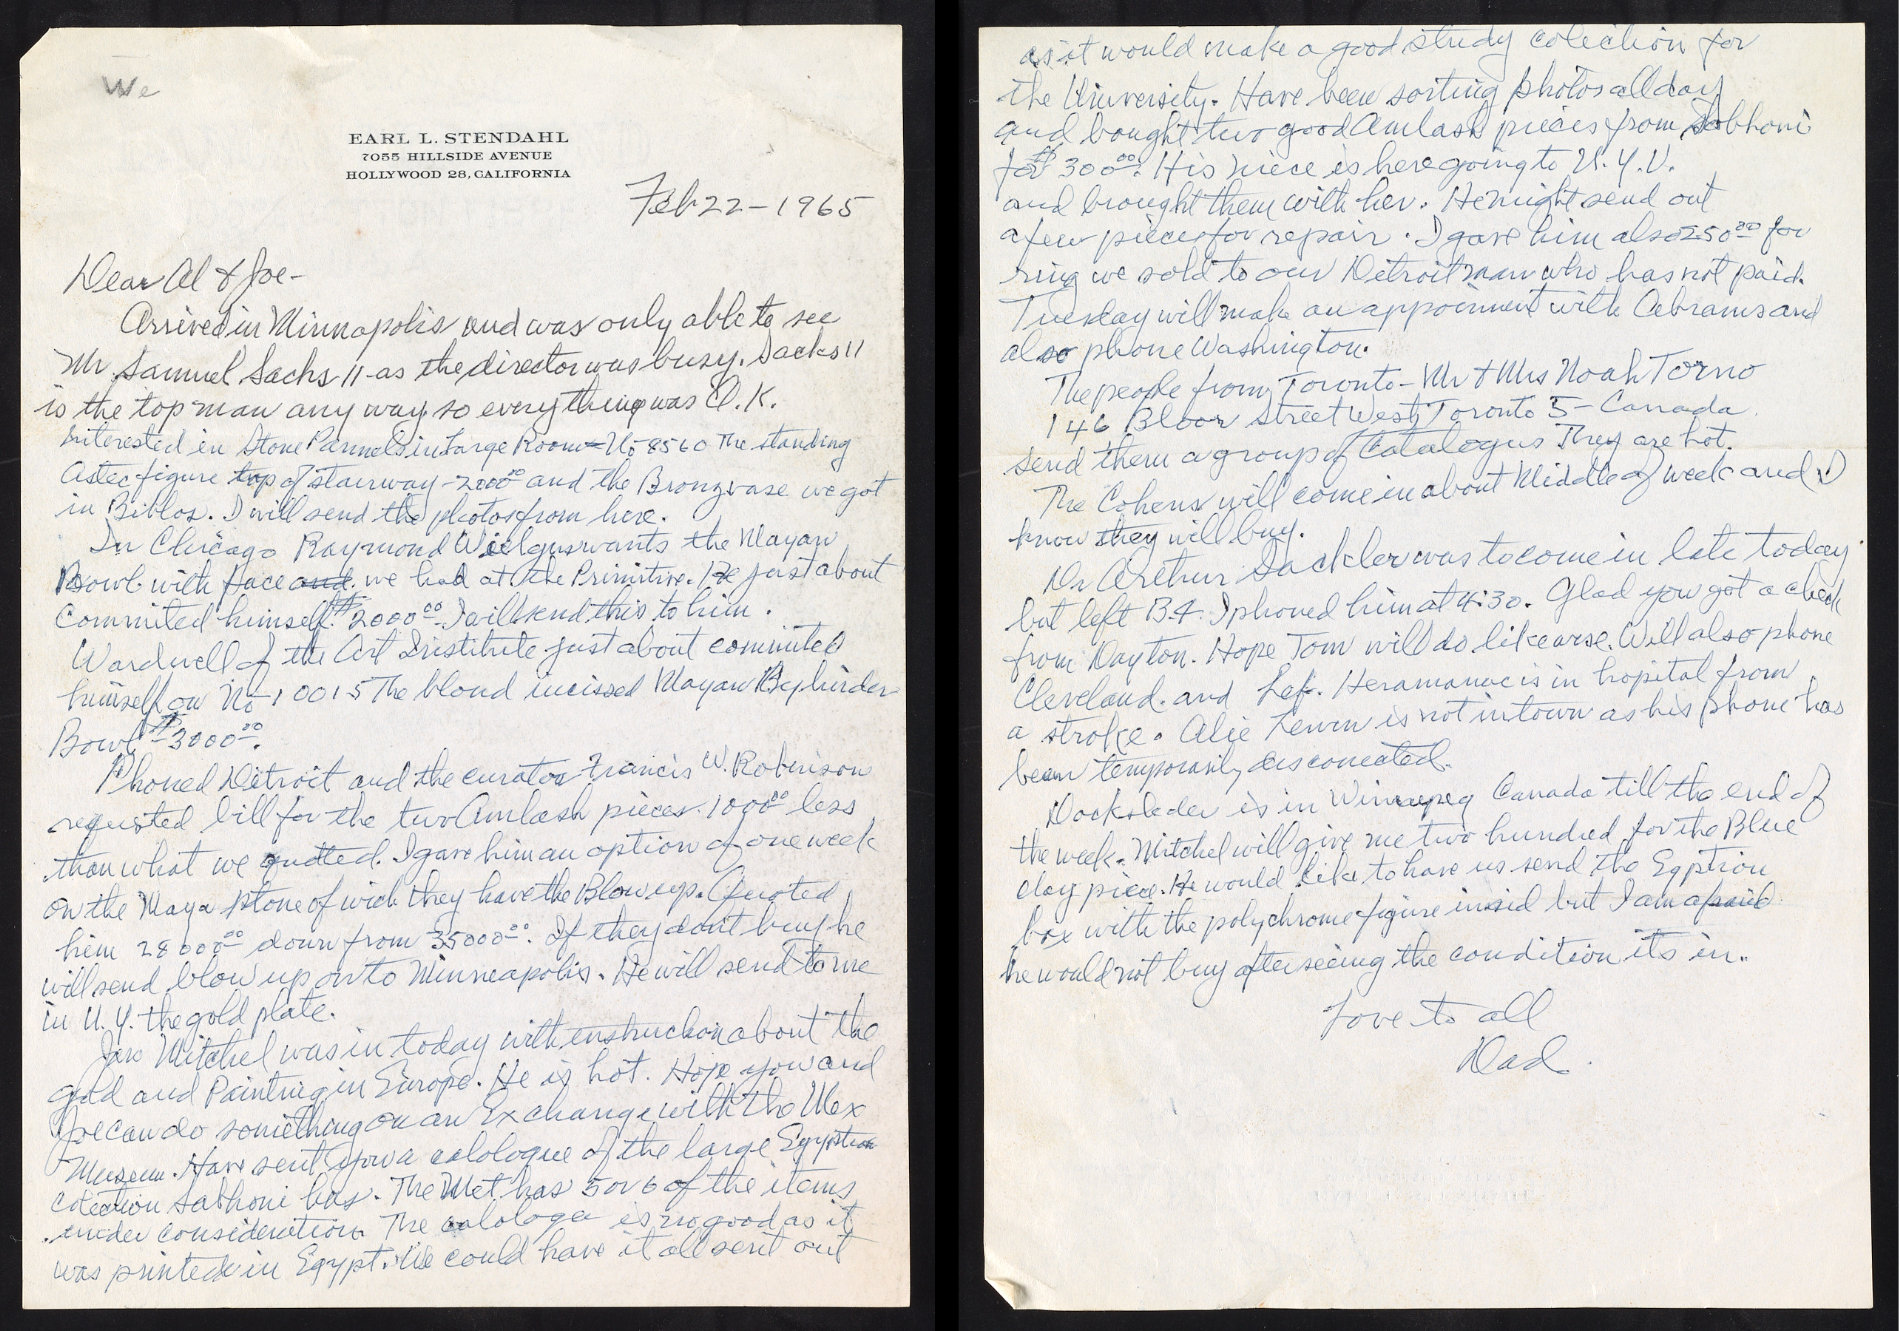 We
EARL L. STENDAHL
7055 HILLSIDE AVENUE
HOLLYWOOD 28, CALIFORNIA
Feb 22 - 1965
Dear Al & Joe -
Arrived in Minnapolis and was only able to see
Mr Samuel Sachs 11 - as the director was busy. Sachs 11
is the top man any way so everything was O.K.
Interested in Stone Pannels in Large Room - No 8560 The standing
Astec figure top of stairway - 2000.00 and the Bronz vase we got
in Biblos. I will send the photos from here.
In Chicago Raymond Wielgus wants the Mayan
Bowl with face and we had at the Primitive. He just about
Commited himself. $2000.00 I will send this to him.
Wardwell of the Art Institute just about commited
himself on No 10015 The blond incissed Mayan
Bowl $3000.00.
Phoned Detroit and the curator Francis W. Robinson
requsted bill for the two Amlash pieces. 1000.00 less
than what we quotted. I gave him an option of one week
on the Maya stone of wich they have the Blow up. Quoted
him 28000.00 down from 35000.00. If they dont buy he
will send blow up on to Minneapolis. He will send to me
in N.Y. the gold plate.
Jan Mitchel was in today with enstruckion about the
gold and Painting in Europe. He is hot. Hope you and
Joe can do something on an Exchange with the Mex
Museum. Have sent you a calologue of the large Egyption
Colection Sabhoni has. The Met has 5 or 6 of the items
under consideration. The calologa is no good as it
was printed in Egypt. We could have it all sent out
as it would make a good study colection for
the University. Have been sorting photos all day
and bought two good Amlash pieces from Sabhoni
for $300.00. His niece is here going to N.Y.U.
and brought them with her. He might send out
a few pieces for repair. I gave him also 250.00 for
ring we sold to our Detroit man who has not paid.
Tuesday will make an appoinment with Abrams and
also phone Washington.
The people from Toronto - Mr & Mrs Noah Torno
146 Bloor Street West, Toronto 5 - Canada.
send them a group of Catalogus They are hot.
The Cohens will come in about Middle of week and I
know they will buy.
Dr Arthur Sackler was to come in late today
but left B.4. I phoned him at 4:30. Glad you got a check
from Dayton. Hope Tom will do likewise. Will also phone
Cleveland. and Lef. Heramanec is in hopital from
a stroke. Alie Lewin is not in town as his phone has
been temporarily disconected.
Dockstader is in Winnepeg Canada till the end of
the week. Mitchel will give me two hundred for the Blue
clay piece. He would like to have us send the Egption
box with the polychrome figure insid but I am afraid
he would not buy after seeing the condition its in.
Love to all
Dad.